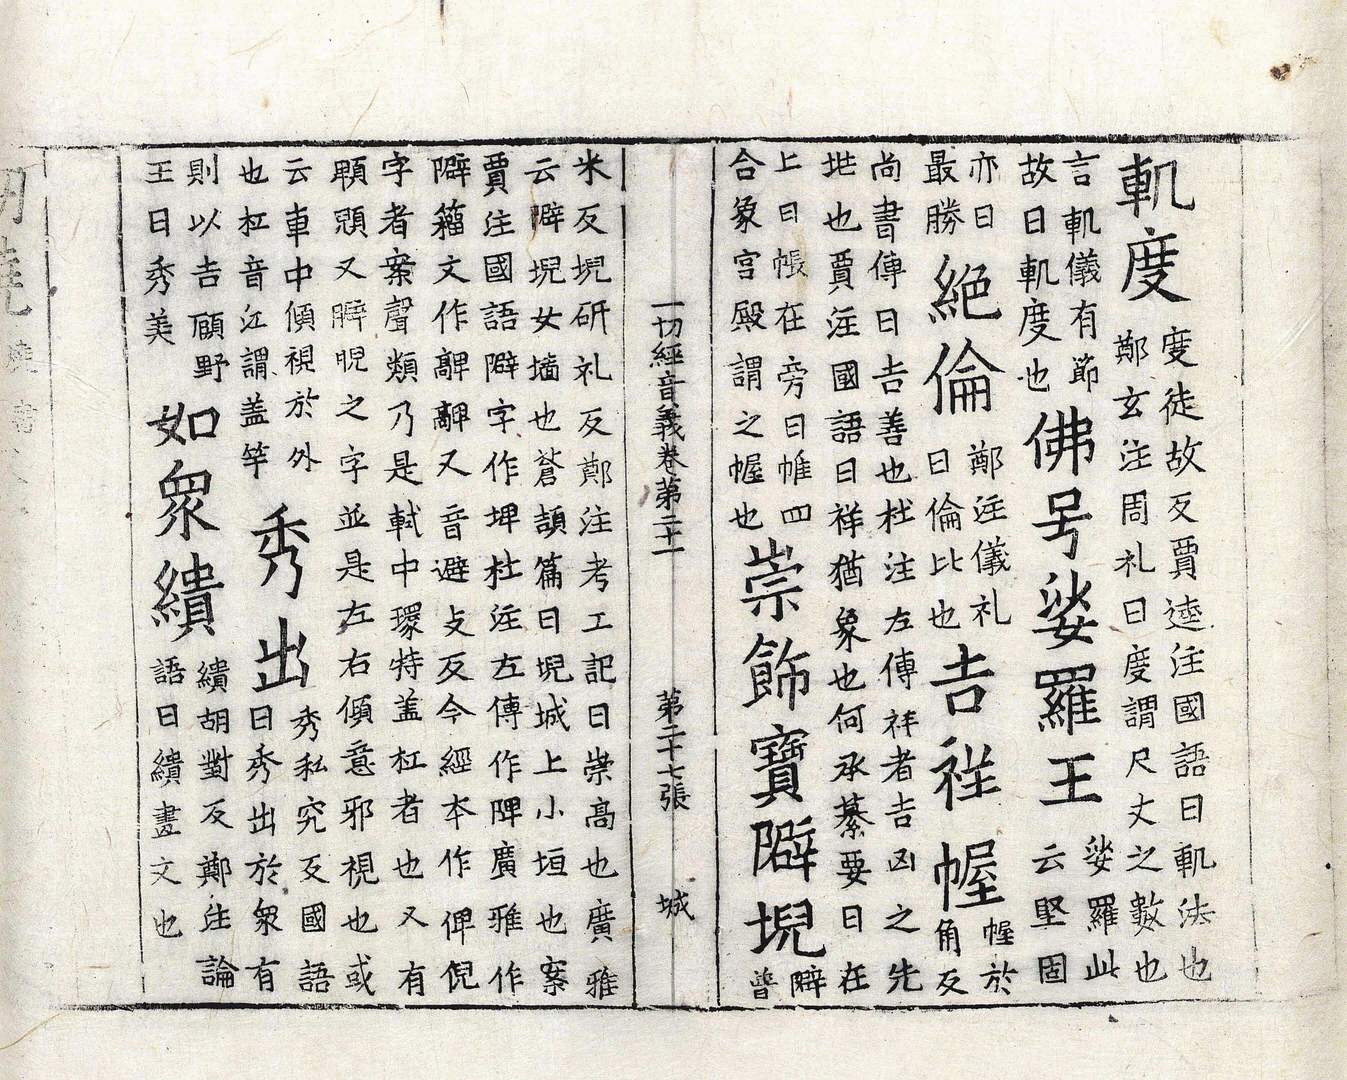 軌度
度徒故反賈逵注國語曰軌法也
鄭玄注周礼曰度謂尺丈之數也
言軌儀有節
故曰軌度也
佛号娑羅王
娑羅此
云堅固
亦曰
最勝
絶倫
鄭注儀礼
曰倫比也
吉祥幄
幄於
角反
尚書傳曰吉善也杜注左傳祥者吉凶之先
也賈注國語曰祥猶象也何承纂要曰在
上曰帳在旁曰帷四
合象宮殿謂之幄也
崇飾寶隦堄
隦
普
一切經音義卷第二十一 第二十七張 城
米反堄研礼反鄭注考工記曰崇高也廣雅
云隦堄女墻也蒼頡篇曰堄城上小垣也案
賈注國語隦字作埤杜注左傳作陴廣雅作
隦籀文作𩫫𩫫又音避支反今經本作俾倪
字者案聲類乃是軾中環特盖杠者也又有
又睥睨之字並是左右傾意邪視也或
云車中傾視於外
也杠音江謂盖竿
秀出
秀私究反國語
曰秀出於衆有
則以吉顧野
王曰秀美
如衆繢
繢胡對反鄭注論
語曰繢畫文也